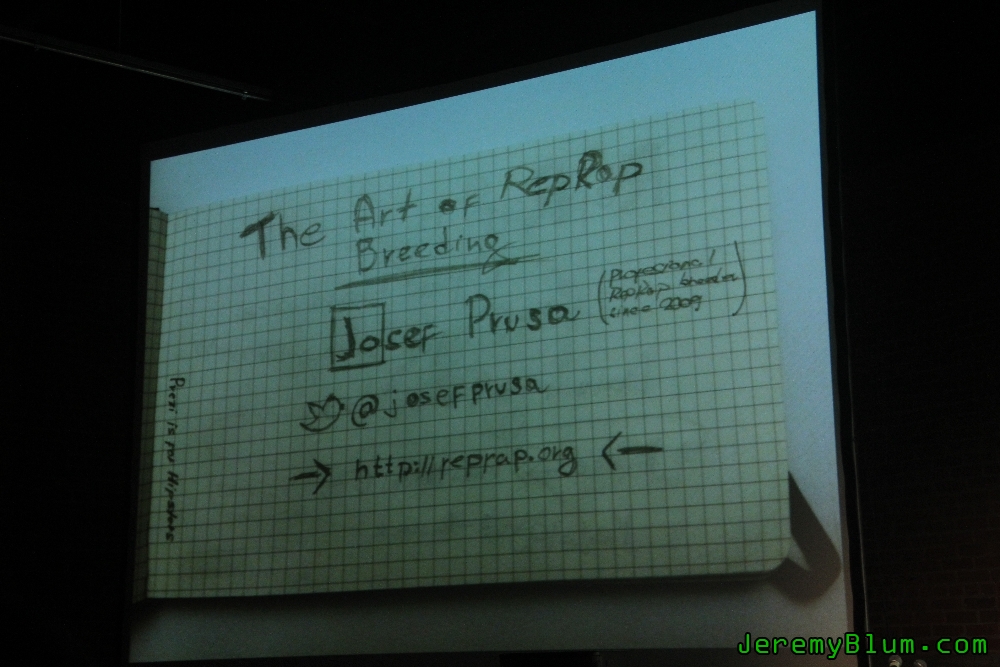 The Art of RepRap
Breeding
Josef Prusa
(Profesional
RepRap breeder
since 2009)
@josefprusa
→ http://reprap.org ←
Prezi is for Hipsters
JeremyBlum.com